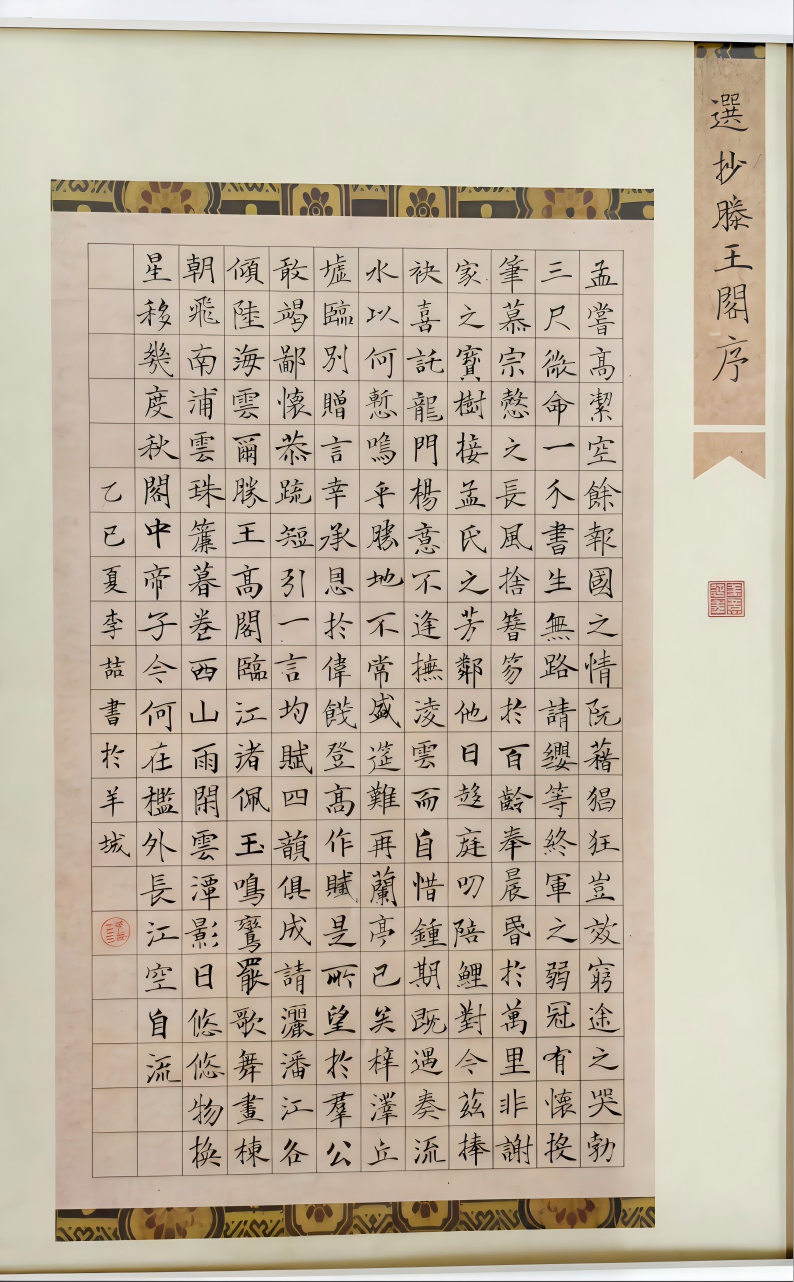 選抄滕王閣序
孟嘗高潔空餘報國之情阮藉猖狂豈效窮途之哭勃
三尺微命一介書生無路請纓等終軍之弱冠有懷投
筆慕宗愨之長風捨簪笏於百齡奉晨昏於萬里非謝
家之寶樹接孟氏之芳鄰他日趍庭叨陪鯉對今茲捧
袂喜託龍門楊意不逢撫淩雲而自惜鍾期既遇奏流
水以何慙嗚乎勝地不常盛筵難再蘭亭已矣梓澤丘
墟臨別贈言幸承恩於偉餞登高作賦是所望於羣公
敢竭鄙懷恭疏短引一言均賦四韻俱成請灑潘江各
傾陸海雲爾勝王高閣臨江渚佩玉鳴鸞罷歌舞畫棟
朝飛南浦雲珠簾暮卷西山雨閑雲潭影日悠悠物換
星移幾度秋閣中帝子今何在檻外長江空自流
乙巳夏李喆書於羊城